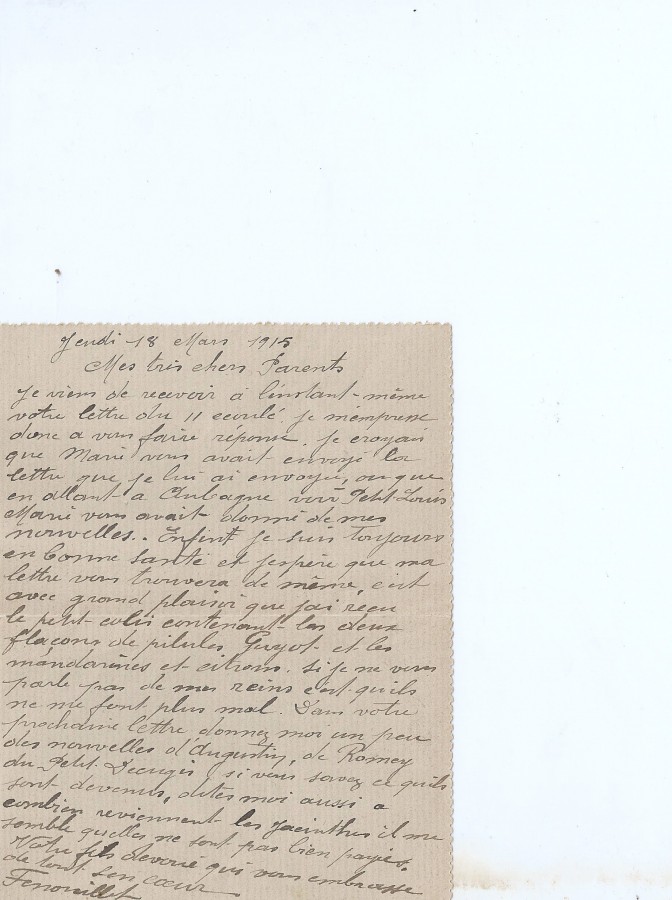 Jeudi 18 Mars 1915
Mes très chers Parents
Je viens de recevoir à l'instant même
votre lettre du 11 ecoulé. je m'empresse
donc a vous faire réponse. je croyais
que Marie vous avait envoyé la
lettre que je lui ai envoyée, ou que
en allant a Aubagne voir Petit Louis
Marie vous avait donné de mes
nouvelles.. Enfin je suis toujours
en bonne santé et j'espère que ma
lettre vous trouvera de même, c'est
avec grand plaisir que j'ai reçu
le petit colis contenant les deux
flacons de pilules Guyot et les
mandarines et citrons. si je ne vous
parle pas de mes reins c'est qu'ils
ne me font plus mal. Dans votre
prochaine lettre donnez moi un peu
des nouvelles d'Augustin, de Romey
du Petit Decugis, si vous savez ce qu'ils
sont devenus, dites moi aussi a
combien reviennent les jacinthes il me
semble qu'elles ne sont pas bien payés.
Votre fils devoué qui vous embrasse
de tout son cœur
Fenouillet